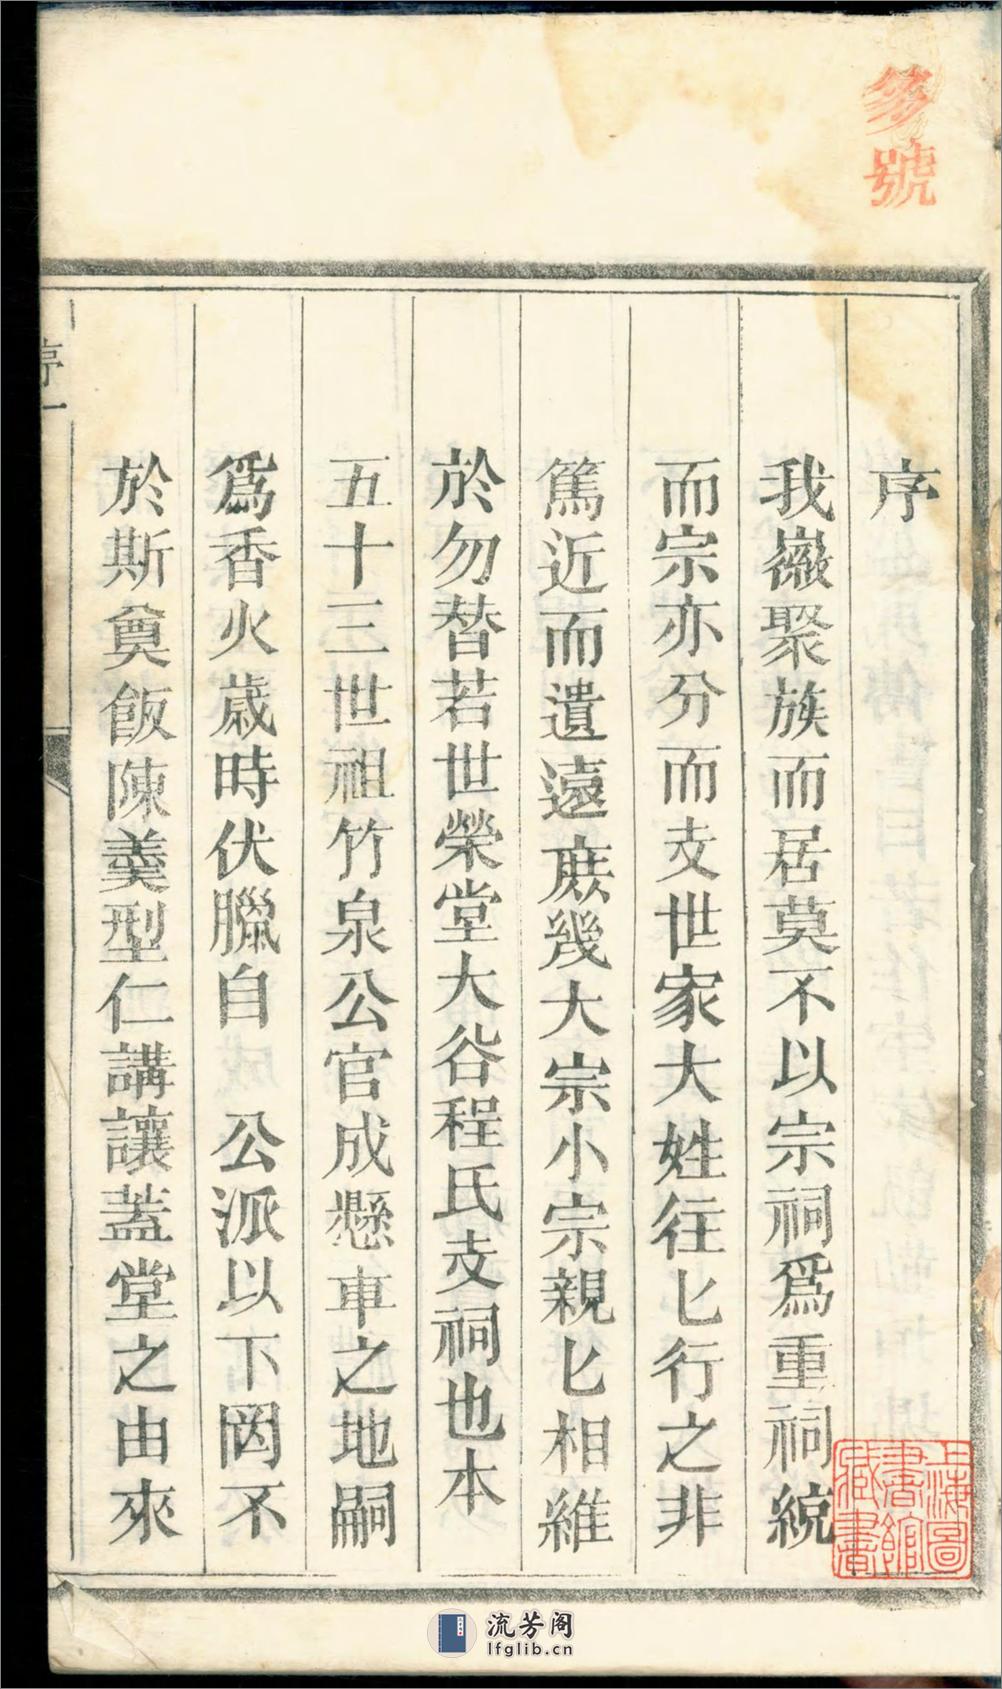 序
我嶶聚族而居莫不以宗祠爲重祠統
而宗亦分而支世家大姓往匕行之非
篤近而遺遠庶幾大宗小宗親匕相維
於勿替若世榮堂大谷程氏支祠也本
五十三世祖竹泉公官成懸車之地嗣
爲香火歲時伏臘自　公派以下罔不
於斯奠飯陳羹型仁講讓蓋堂之由來
序一
號
上海圖書館藏書
流芳阁
lfglib.cn